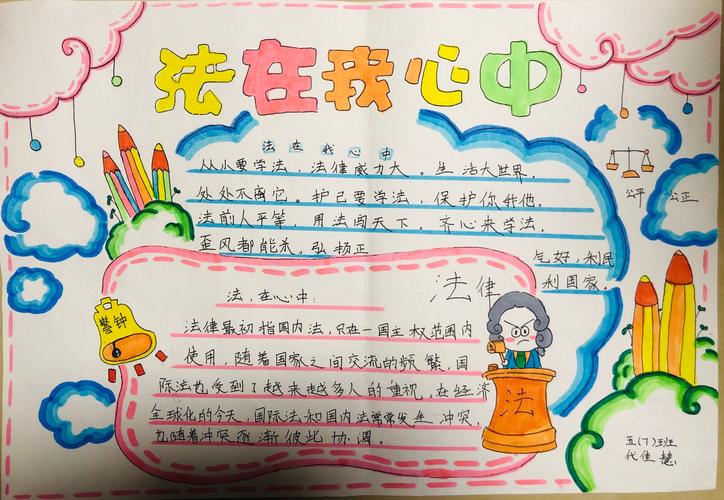 法在我心中
法在我心中
从小要学法，法律威力大。生活大世界，
处处不离它。护己要学法，保护你我他。
法前人平等，用法闯天下。齐心来学法，
歪风都能杀。弘扬正
气好，利民
利国家。
公平 公正
法律
警钟
法，在心中：
法律最初指国内法，只在一国主权范围内
使用，随着国家之间交流的频繁，国
际法也受到了越来越多人的重视，在经济
全球化的今天，国际法和国内法常常发生冲突，
也随着冲突逐渐彼此协调。
法
五(7)班
代佳慧